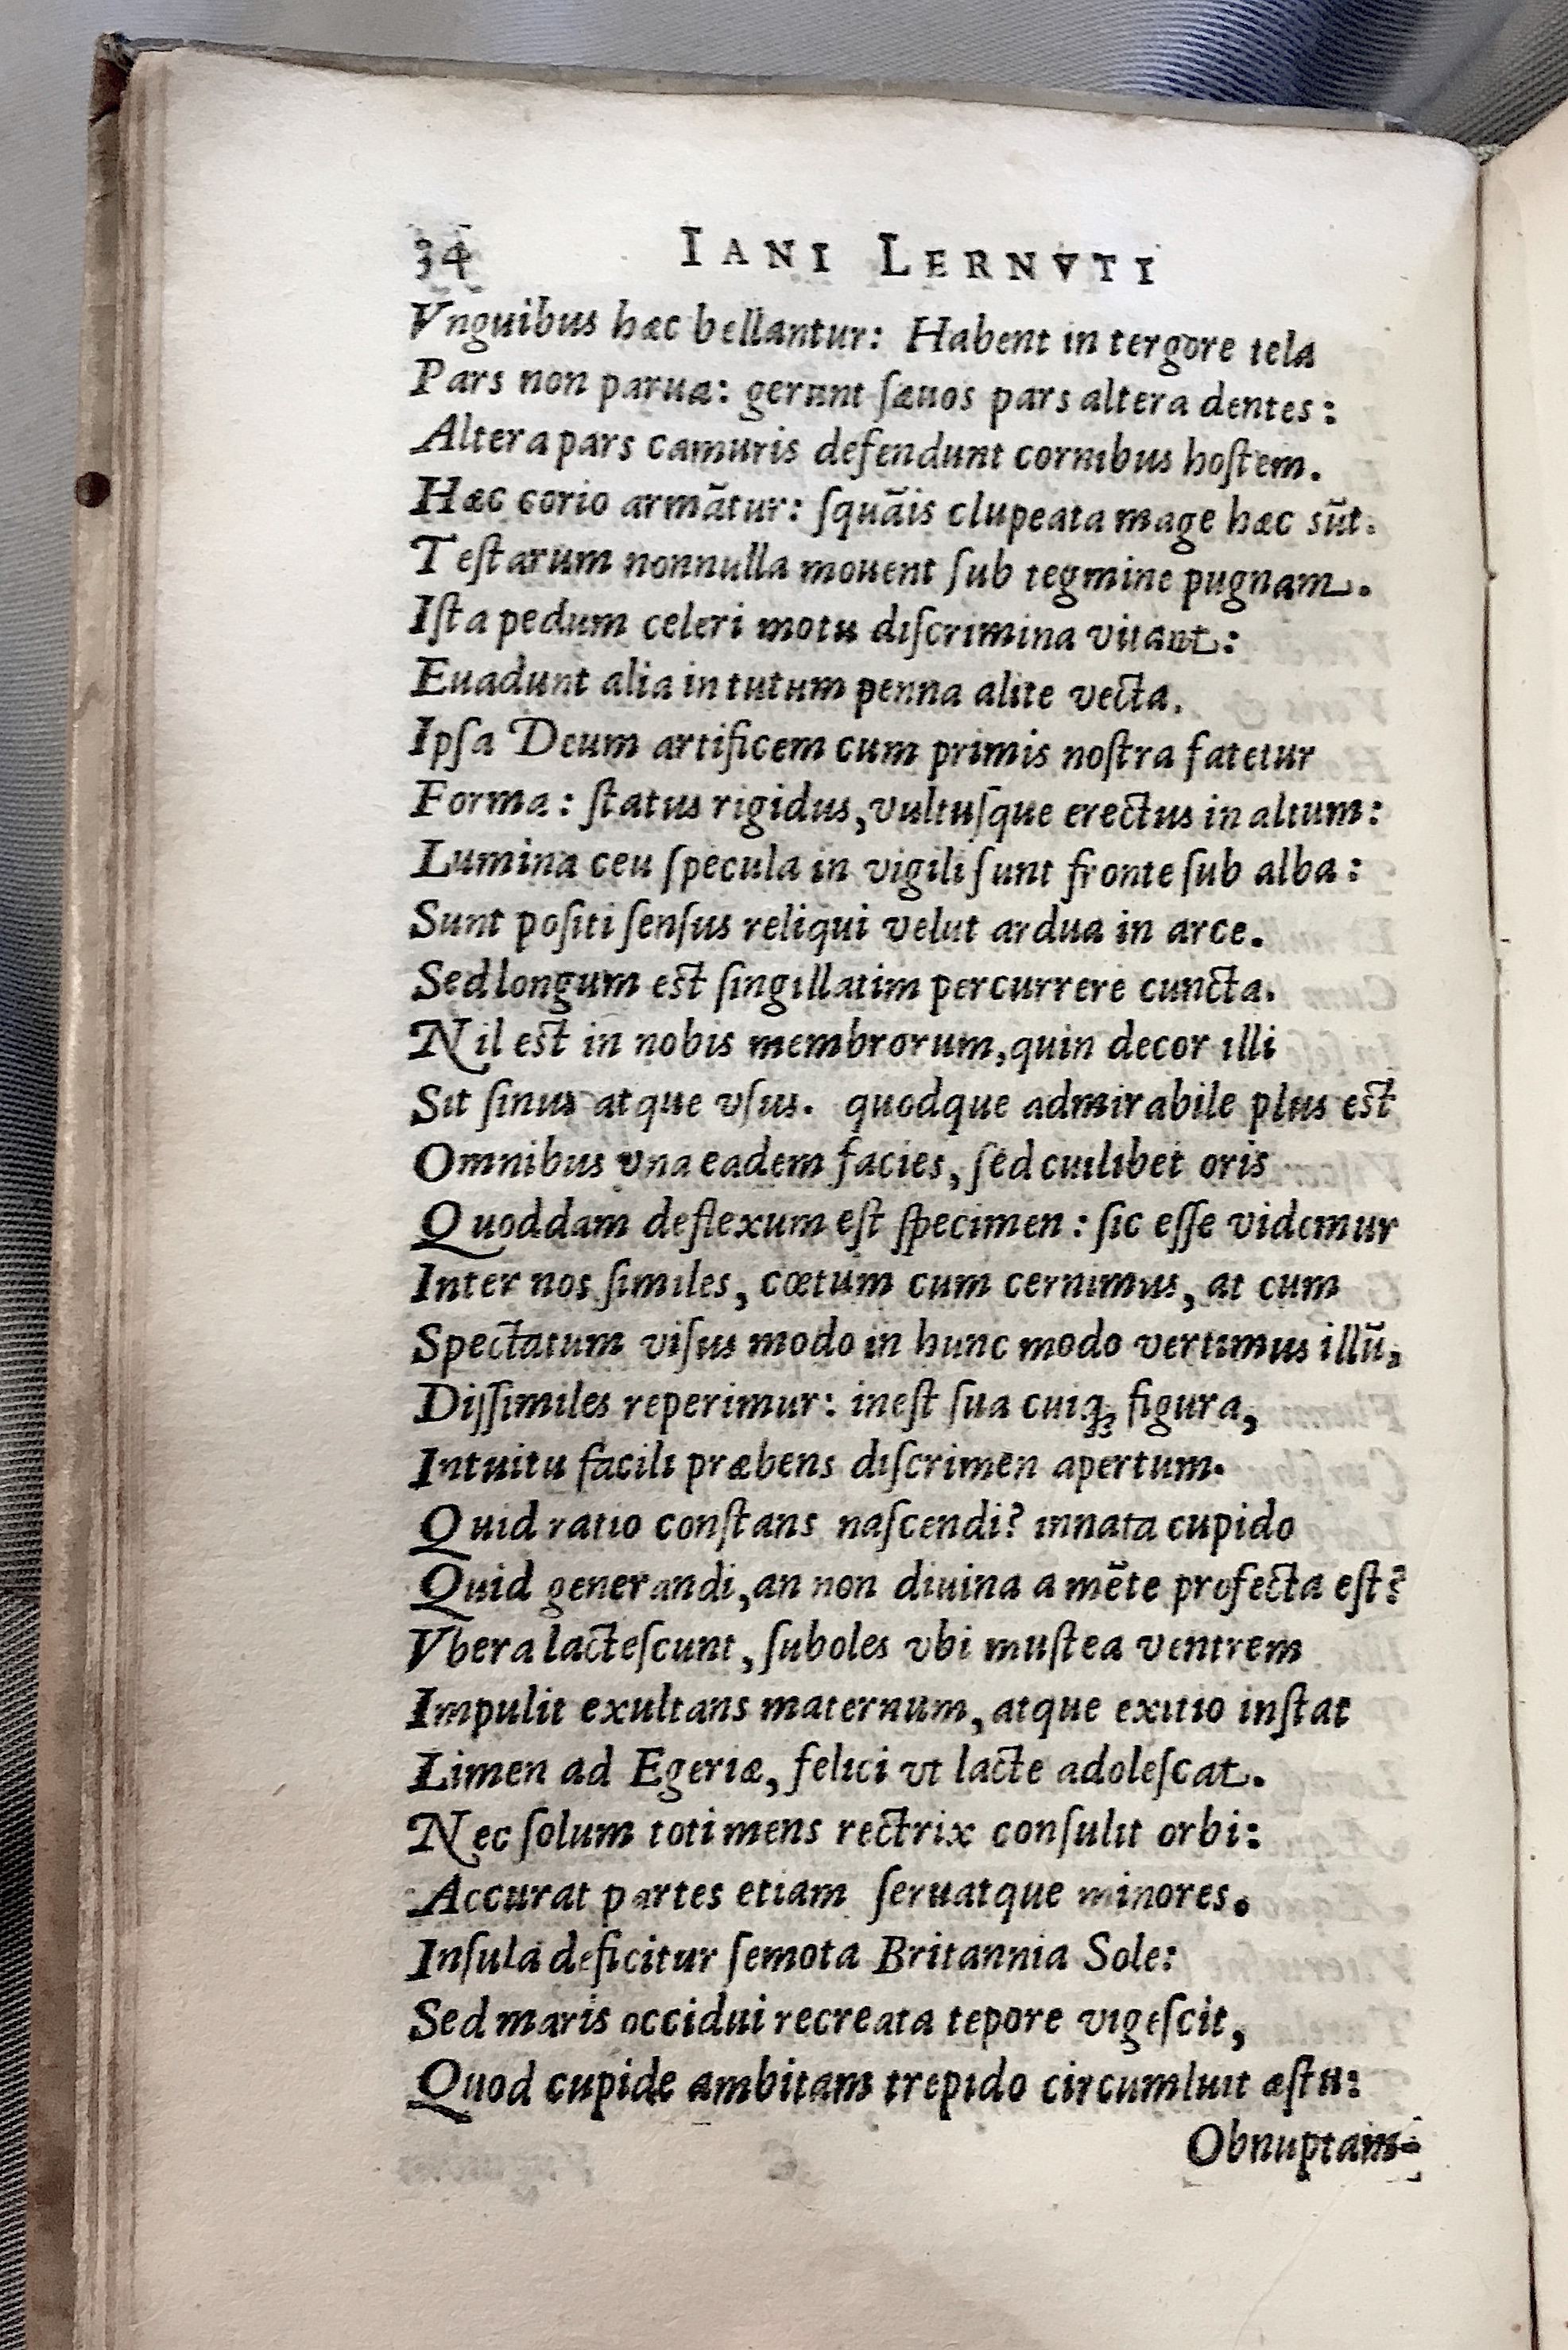 34 IANI LERNVTI
Vnguibus hæc bellantur: Habent in tergore tela
Pars non parua: gerunt ſæuos pars altera dentes:
Altera pars camuris defendunt cornibus hoſtem.
Hæc corio armãtur: ſquãis clupeata mage hæc sũt.
Teſtarum nonnulla mouent ſub tegmine pugnam.
Iſta pedum celeri motu diſcrimina vitant:
Euadunt alia in tutum penna alite vecta.
Ipſa Deum artificem cum primis noſtra fatetur
Forma: ſtatus rigidus, vultuſque erectus in altum:
Lumina ceu ſpecula in vigili ſunt fronte ſub alba:
Sunt poſiti ſenſus reliqui velut ardua in arce.
Sed longum est ſingillatim percurrere cuncta.
Nil est in nobis membrorum, quin decor illi
Sit ſinus atque vſus. quodque admirabile plus est
Omnibus vna eadem facies, ſed cuilibet oris
Quoddam deflexum eſt ſpecimen: ſic eſſe videmur
Inter nos ſimiles, cœtum cum cernimus, at cum
Spectatum viſus modo in hunc modo vertimus illũ,
Diſſimiles reperimur: ineſt ſua cuiq; figura,
Intuitu facili præbens diſcrimen apertum.
Quid ratio conſtans naſcendi? innata cupido
Quid generandi, an non diuina a mẽte profecta eſt?
Vbera lacteſcunt, ſuboles vbi muſtea ventrem
Impulit exultans maternum, atque exitio inſtat
Limen ad Egeriæ, felici vt lacte adoleſcat.
Nec ſolum toti mens rectrix conſulit orbi:
Accurat partes etiam ſeruatque minores.
Inſula deficitur ſemota Britannia Sole:
Sed maris occidui recreata tepore vigeſcit,
Quod cupide ambitam trepido circumluit æſtu:
Obnuptam-